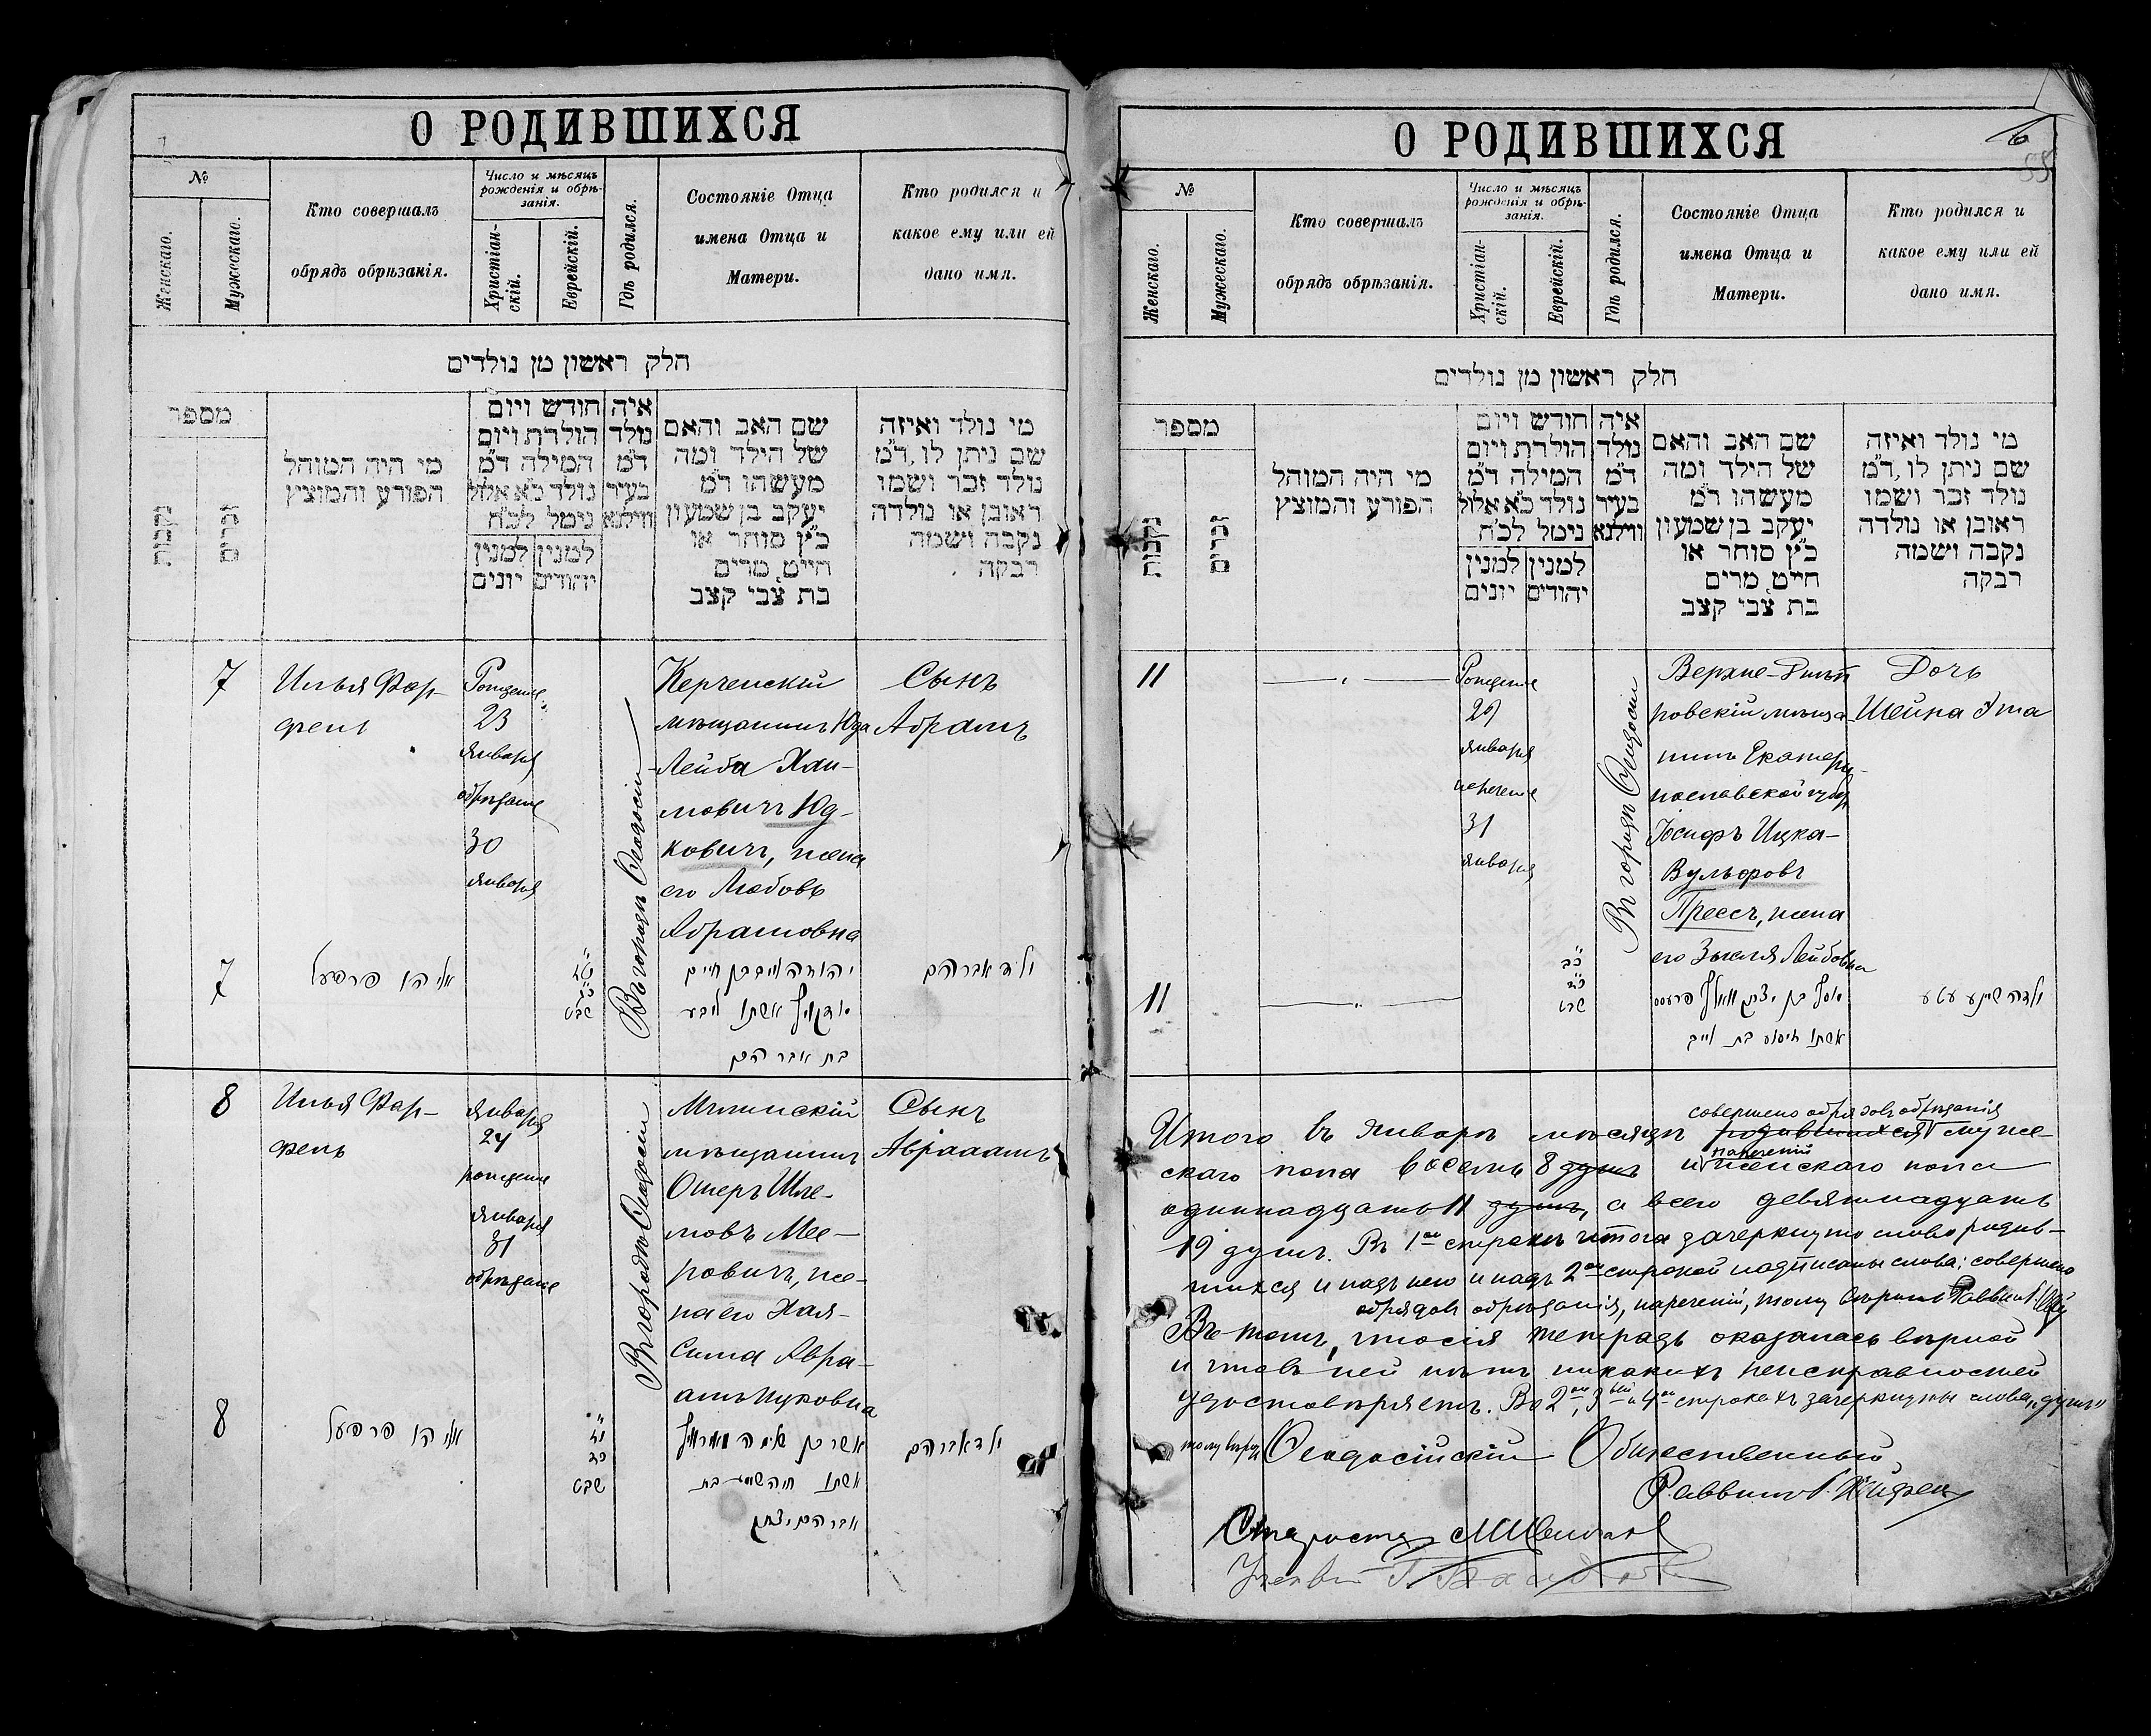 О РОДИВШИХСЯ
№
Женскаго.
Мужескаго.
Кто совершалъ
обрядъ обрѣзанія.
Число и мѣсяцъ
рожденія и обрѣ-
занія.
Христіан-
скій.
Еврейскій.
Гдѣ родился.
Состояніе Отца
имена Отца и
Матери.
Кто родился и
какое ему или ей
дано имя.
חלק ראשון מן נולדים
מספר
נקבות
זכרים
מי היה המוהל
הפורע והמוצץ
חודש ויום
הולדת ויום
המילה ד"מ
נולד כ"א אלול
נימל לכ"ח
למנין
יונים
למנין
יהודים
איה
נולד
ד"מ
בעיר
ווילנא
שם האב והאם
של הילד ומה
מעשהו ד"מ
יעקב בן שמעון
כ"ץ סוחר או
חייט, מרים
בת צבי קצב
מי נולד ואיזה
שם ניתן לו, ד"מ
נולד זכר ושמו
ראובן או נולדה
נקבה ושמה
רבקה
7
Илья Фар-
фель
Рожденіе
23
января
обрѣзаніе
30
января
Въ городѣ Ѳеодосіи
Керченскій
мѣщанинъ Юда
Лейба Хаи-
мовичъ Юд-
ковичъ, жена
его Любовь
Абрамовна
Сынъ
Абрамъ
7
אליהו פרפעל
שבט
יהודה לייב בן חיים
יודקוויץ אשתו ליבע
בת אברהם
ילד אברהם
8
Илья Фар-
фель
января
24
рожденіе
января
31
обрѣзаніе
Въ городѣ Ѳеодосіи
мѣщанинъ
Ошеръ Шле-
мовъ Мее-
ровичъ, же-
на его Хая-
Сима Авра-
амъ Ицковна
Сынъ
Авраамъ
8
אליהו פרפעל
כד
שבט
אשר בן שלמה מאיראוויץ
אשתו חיה סימע בת
אברהם יצחק
ילד אברהם
О РОДИВШИХСЯ
6
№
Женскаго.
Мужескаго.
Кто совершалъ
обрядъ обрѣзанія.
Число и мѣсяцъ
рожденія и обрѣ-
занія.
Христіан-
скій.
Еврейскій.
Гдѣ родился.
Состояніе Отца
имена Отца и
Матери.
Кто родился и
какое ему или ей
дано имя.
חלק ראשון מן נולדים
מספר
נקבות
זכרים
מי היה המוהל
הפורע והמוצץ
חודש ויום
הולדת ויום
המילה ד"מ
נולד כ"א אלול
נימל לכ"ח
למנין
יונים
למנין
יהודים
איה
נולד
ד"מ
בעיר
ווילנא
שם האב והאם
של הילד ומה
מעשהו ד"מ
יעקב בן שמעון
כ"ץ סוחר או
חייט, מרים
בת צבי קצב
מי נולד ואיזה
שם ניתן לו, ד"מ
נולד זכר ושמו
ראובן או נולדה
נקבה ושמה
רבקה
11
Рожденіе
29
января
нареченіе
31
января
Въ городѣ Ѳеодосіи
Верхне-Днѣп
ровскій мѣща-
нинъ Екатери-
нославской губер
Іосифъ Ицка-
Вульфовъ
Прессъ, жена
его Лейбовна
Дочь
Шейна Эта
11
כב
כד
שבט
יוסף בן יצחק וואלף פרעסס
אשתו בת לייב
ילדה שיינע עטע
совершено обрядовъ обрѣзанія
Итого въ январѣ мѣсяцѣ родившихся муже-
нареченій
скаго пола восемь 8 душъ и женскаго пола
одиннадцать 11 душъ, а всего девятнадцать
19 душъ. Въ 1ой строкѣ итога зачеркнуто слово родив-
шихся и надъ нею и надъ 2ой строкой надписаны слова: совершено
обрядовъ обрѣзанія, нареченій, тому вѣрить Раввинъ
Въ томъ, что сія тетрадь оказалась вѣрной
и что въ ней нѣтъ никакихъ неисправностей
удостовѣряемъ. Въ 2ой, 3ьей и 4ой строкахъ зачеркнуты слова „душъ"
тому вѣрить Ѳеодосійскій Общественный
Раввинъ
Староста